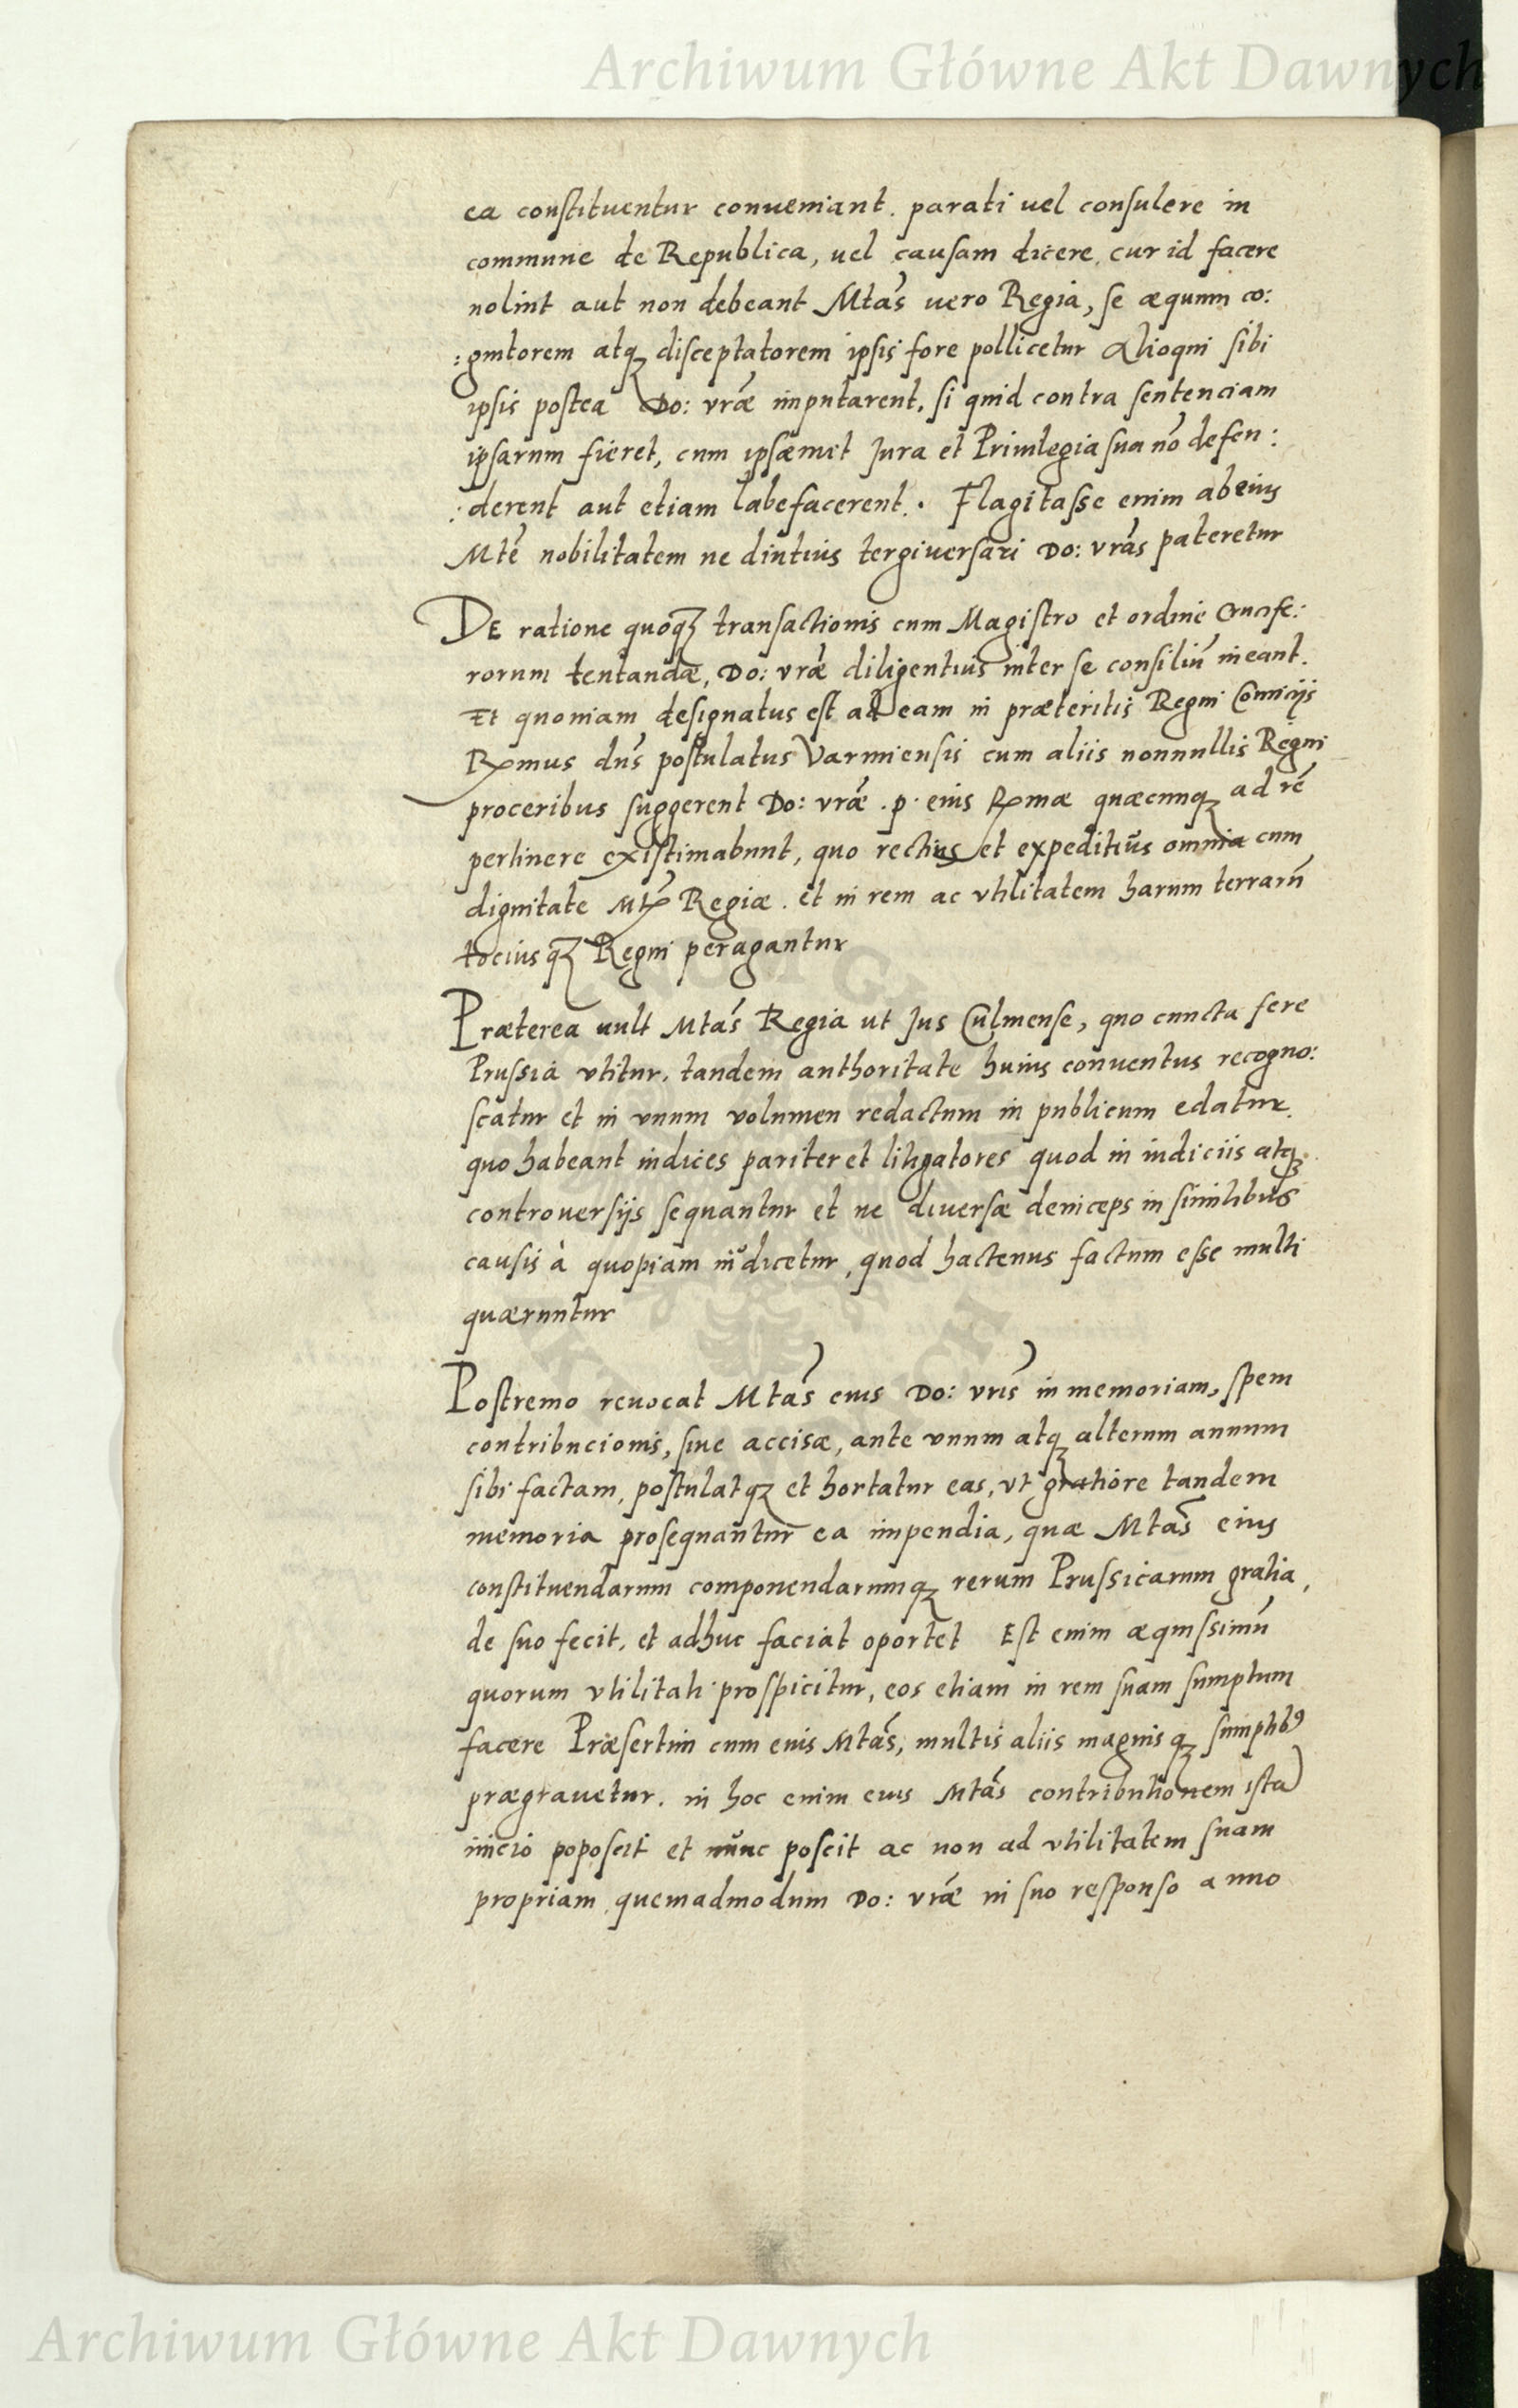 Archiwum Główne Akt Dawnych
ea constituentur conueniant. parati uel consulere in
commune de Republica, uel causam dicere, cur id facere
nolint aut non debeant Mtas uero Regia, se æquum co:
:gnitorem atq disceptatorem ipsis fore pollicetur Alioqui sibi
ipsis postea Do: vræ imputarent, si quid contra sentenciam
ipsarum fieret, cum ipsæmet Jura et Priuilegia sua nō defen:
:derent aut etiam labefacerent. Flagitasse enim ab eius
Mtē nobilitatem ne diutius tergiuersari Do: vrās pateretur
DE ratione quoq transactionis cum Magistro et ordine Crucife:
rorum tentandæ, Do: vræ diligentius inter se consiliū ineant.
Et quoniam designatus est ad eam in præteritis Regni Comicijs
Rmus dns postulatus Varmiensis cum aliis nonnullis Regni
proceribus suggerent Do: vræ .p. eius Rmæ quæcunq ad rē
pertinere existimabunt, quo rectius et expeditius omnia cum
dignitate Mtis Regiæ. et in rem ac vtilitatem harum terrarū
tociusq Regni peragantur
Præterea uult Mtas Regia ut Jus Culmense, quo cuncta fere
Prussia vtitur, tandem authoritate huius conuentus recogno:
scatur et in vnum volumen redactum in publicum edatur.
quo habeant iudices pariter et litigatores quod in iudiciis atq
controuersijs sequantur et ne diuersæ deinceps in similibus
causis à quopiam iudicetur, quod hactenus factum esse multi
quæruntur
Postremo reuocat Mtas eius Do: vris in memoriam, spem
contribucionis, siue accisæ, ante vnum atq alterum annum
sibi factam, postulatq et hortatur eas, vt gratiore tandem
memoria prosequantur ea impendia, quæ Mtas eius
constituendarum componendarumq rerum Prussicarum gratia,
de suo fecit, et adhuc faciat oportet Est enim æquissimū
quorum vtilitati prospicitur, eos etiam in rem suam sumptum
facere Præsertim cum eius Mtas, multis aliis magnisq sumptibꝰ
prægrauetur. in hoc enim eius Mtas contributionem istā
inicio poposcit et nunc poscit ac non ad vtilitatem suam
propriam, quemadmodum Do: vræ in suo responso anno
Archiwum Główne Akt Dawnych